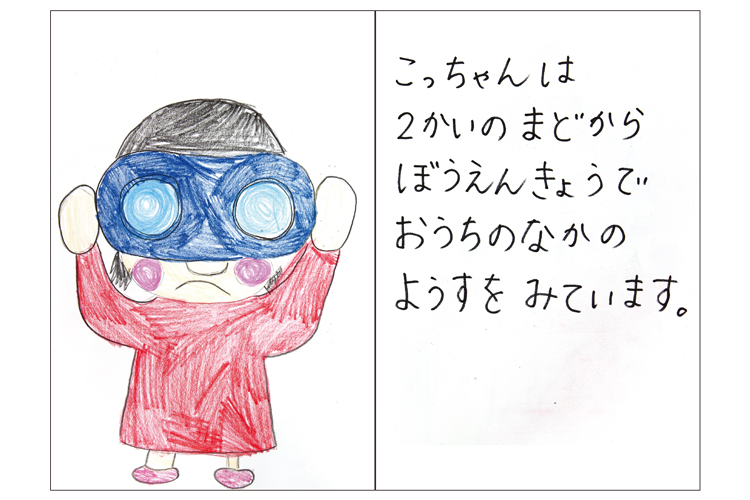 こっちゃんは
2かいの まどから
ぼうえんきょうで
おうちのなかの
ようすを みています。